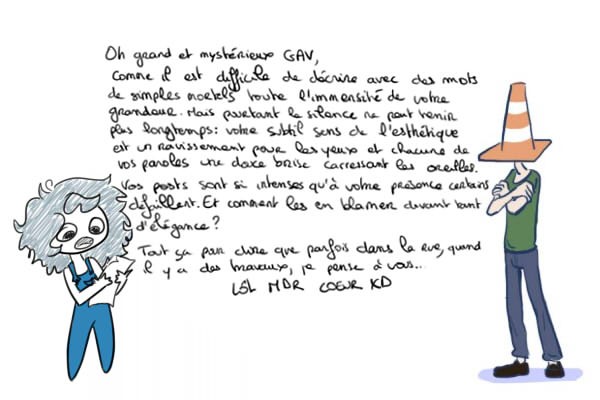 Oh grand et mystérieux GAV,
comme il est difficile de décrire avec des mots
de simples mortels toute l'immensité de votre
grandeur. Mais pourtant le silence ne peut tenir
plus longtemps : votre subtil sens de l'esthétique
est un ravissement pour les yeux et chacune de
vos paroles une douce brise carressant les oreilles.
Vos posts sont si intenses qu'à votre présence certains
défaillent. Et comment les en blamer devant tant
d'élégance ?
Tout ça pour dire que parfois dans la rue, quand
il y a des travaux, je pense à vous...
LOL MDR COEUR XD